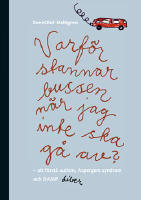 Sven-Olof Dahlgren
Varför
stannar
bussen
när jag
inte ska
gå av?
– att förstå autism, Aspergers syndrom
och DAMP
Liber